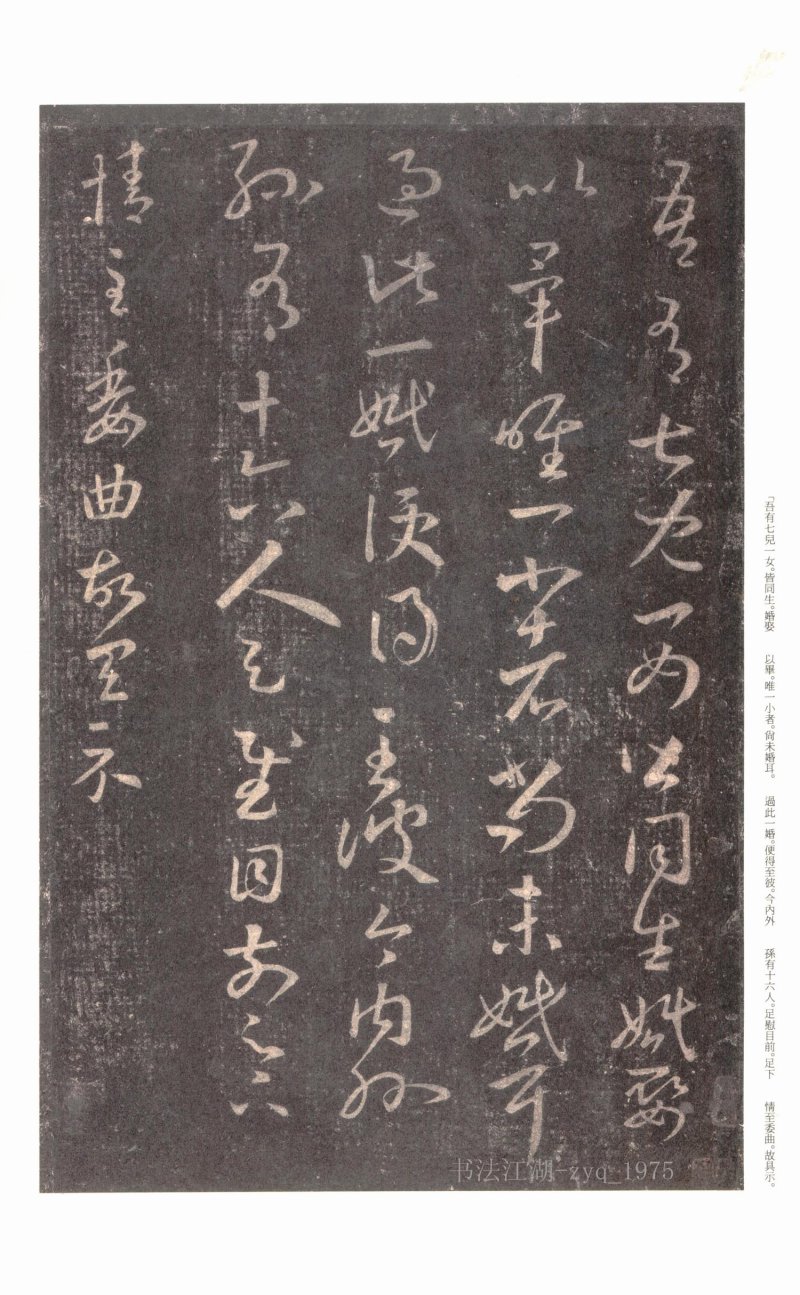 吾有七兒一女皆同生婚娶
以畢唯一小者尚未婚耳
過此一婚便得至彼今內外
孫有十六人足慰目前足下
情至委曲故具示
「吾有七兒一女。皆同生。婚娶
以畢。唯一小者。尙未婚耳。
過此一婚。便得至彼。今內外
孫有十六人。足慰目前。足下
情至委曲。故具示。
书法江湖-zyq_1975